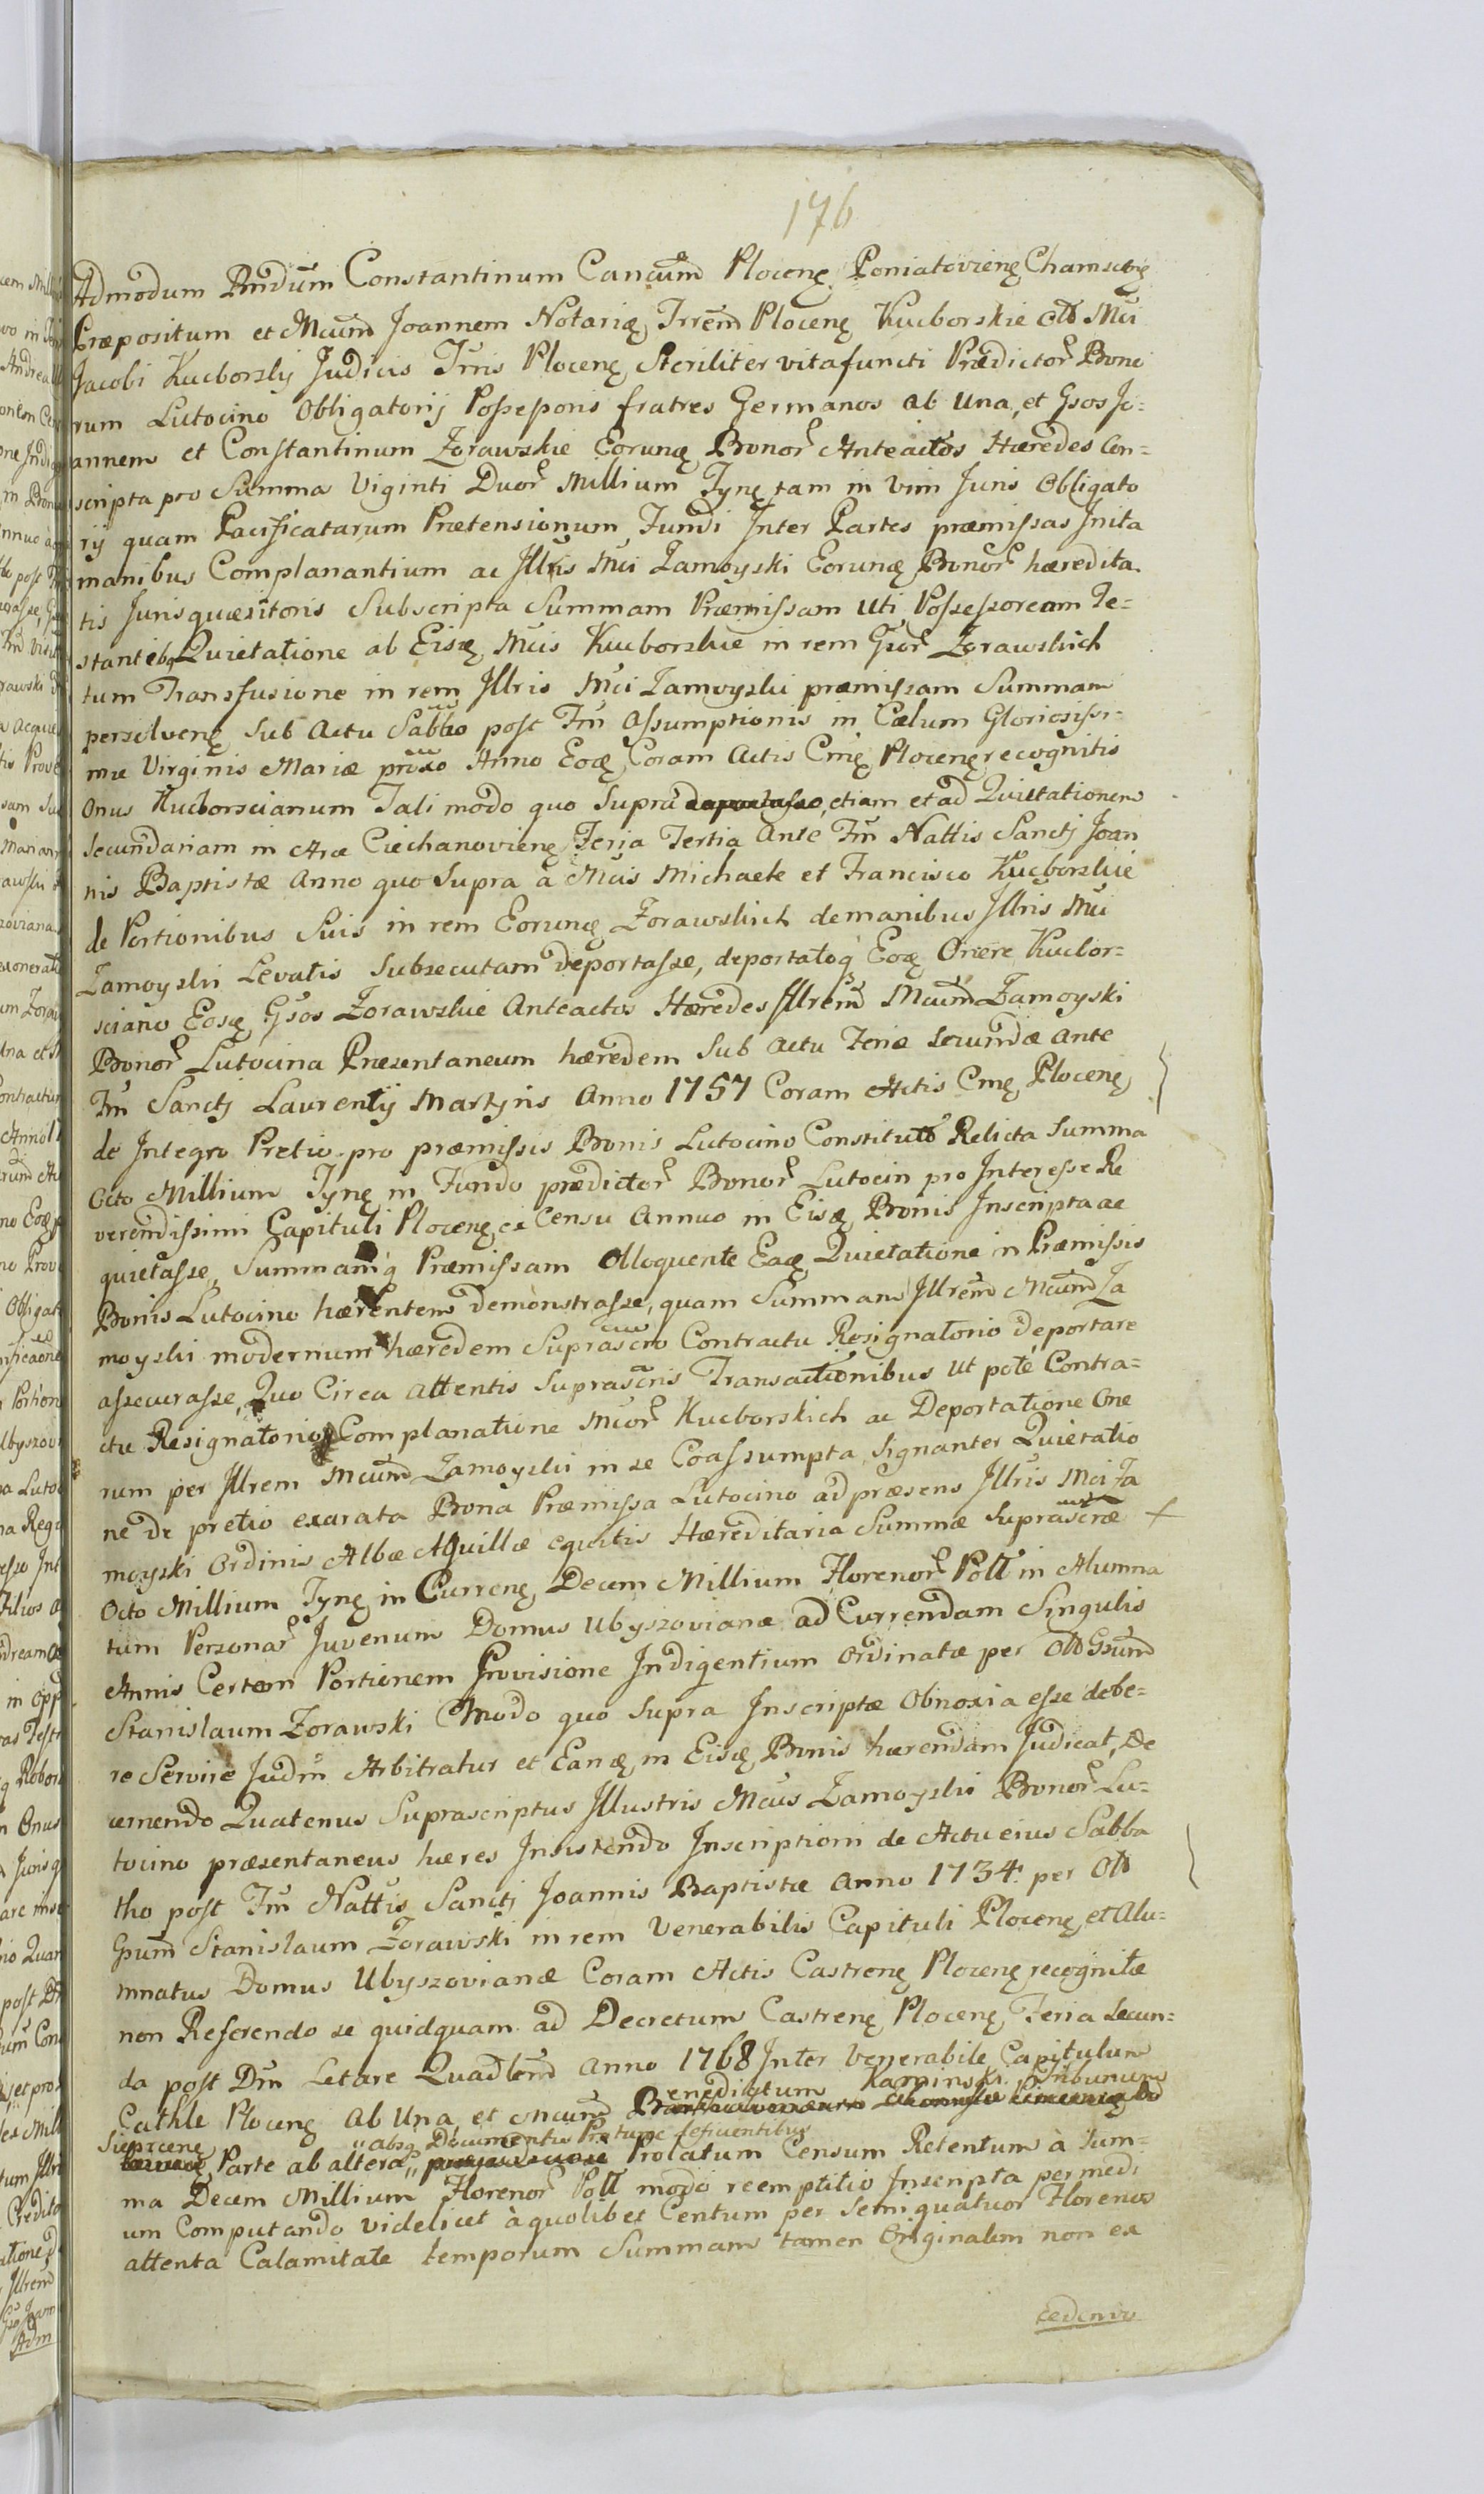 176
Admodum Rndum Constantinum Cancum Plocenę Poniatovienę Chamscenę
Præpositum et Mcum Joannem Notarię Trrem Plocenę Kucborskie Olt Mci
Jacobi Kucborskij Judicis Trris Plocenę Steriliter vitafuncti Prædictor Bono
rum Lutocino Obligatorij Possessoris fratres Germanos ab Una, et Gsos Jo=
annem et Constantinum Zorawskie Eorunę Bonor Anteactos Hæredes Con=
scripta pro Summa Viginti Duor Millium Tynę tam in vim Juris Obligato
rij quam Pacificatarum Prætensionum Fundi Inter Partes præmissas Inita
manibus Complanantium ac Illris Mci Zamoyski Eorunę Bonor hæredita
tis Jurisquæsitoris Subscripta Summam Præmissam Uti Possessoream Te=
stantibq Quietatione ab Eisę Mcis Kucborskie in rem Gsor Zorawskich
tum Transfusione in rem Illris Mci Zamoyski præmissam Summam
persolvenę Sub Actu Sabbo post Fm Assumptionis in Cælum Gloriosissi=
mæ Virginis Mariæ proxo Anno Eoę Coram Actis Cmę Plocenę recognitis
Onus Kucborscianum Tali modo quo Supra etiam et ad Quietationem
Secundariam in Aræ Ciechanovienę Feria Tertia Ante Fm Nattis Sancti Joan
nis Baptistæ Anno quo Supra à Mcis Michaele et Francisco Kucborskie
de Portionibus Suis in rem Eorunę Zorawskich de manibus Illris Mci
Zamoyski Levatis Subsecutam deportasse, deportatoq Eoę Onere Kucbor=
sciano Eosę Gsos Zorawskie Anteactos Hæredes Illrem Mcum Zamoyski
Bonor Lutocina Præsentaneum hæredem Sub Actu Feriæ Secundæ Ante
Fm Sancti Laurentij Martyris Anno 1757 Coram Actis Cmę Plocenę
de Integro Pretio pro præmissis Bonis Lutocino Constituto Relicta Summa
Octo Millium Tynę in Fundo prædictor Bonor Lutocin pro Interesse Re
verendissimi Capituli Plocenę ex Censu Annuo in Eisę Bonis Inscripta ac
quietasse, Summamq Præmissam Olloquente Eaę Quietatione in Præmissis
Bonis Lutocino hærentem demonstrasse, quam Summam Illrem Mcum Za
moyski modernum hæredem Suprascro Contractu Resignatorio deportare
assecurasse, Quo Circa Attentis Suprascris Transactionibus Ut pote Contra=
ctu Resignatorio, Complanatione Mcor Kucborskich ac Deportatione One
rum per Illrem Mcum Zamoyski in se Coassumpta, Signanter Quietatio
ne de pretio exarata Bona Præmissa Lutocino ad præsens Illris Mci Za
moyski Ordinis Albæ Aquillæ equitis Hæreditaria Summæ Suprascræ +
Octo Millium Tynę in Currenę Decem Millium Florenor Poll in Alumna
tum Personar Juvenum Domus Ubyszovianæ ad Currendam Singulis
Annis Certam Portionem Provisione Indigentium Ordinatæ per Olt Gsum
Stanislaum Zorawski Modo quo Supra Inscriptæ Obnoxia esse debe=
re Servire Judm Arbitratur et Eanę in Eisę Bonis hærendam Judicat, De
cernendo Quatenus Suprascriptus Illustris Mcus Zamoyski Bonor Lu=
tocino præsentaneus hæres Insistendo Inscriptioni de Actu eius Sabba
tho post Fm Nattis Sancti Joannis Baptistæ Anno 1734 per Olt
Gsum Stanislaum Zorawski in rem Venerabilis Capituli Plocenę et Alu=
mnatus Domus Ubyszovianæ Coram Actis Castrenę Plocenę recognitæ
non Referendo se quidquam ad Decretum Castrenę Plocenę Feria Secun=
da post Dm Letare Quadlem Anno 1768 Inter Venerabile Capitulum
Cathle Plocenę Ab Una et Mcum Benedictum Kaminski Tribunum
Sieprcenę Parte ab altera „absq Documentis Pro tunc deficientibus Prolatum Censum Retentum à Sum=
ma Decem Millium Florenor Poll modo reemptitio Inscripta per medi
um Computando videlicet à quolibet Centum per Semiquatuor Florenos
attenta Calamitate temporum Summam tamen Originalem non ex
cedenio